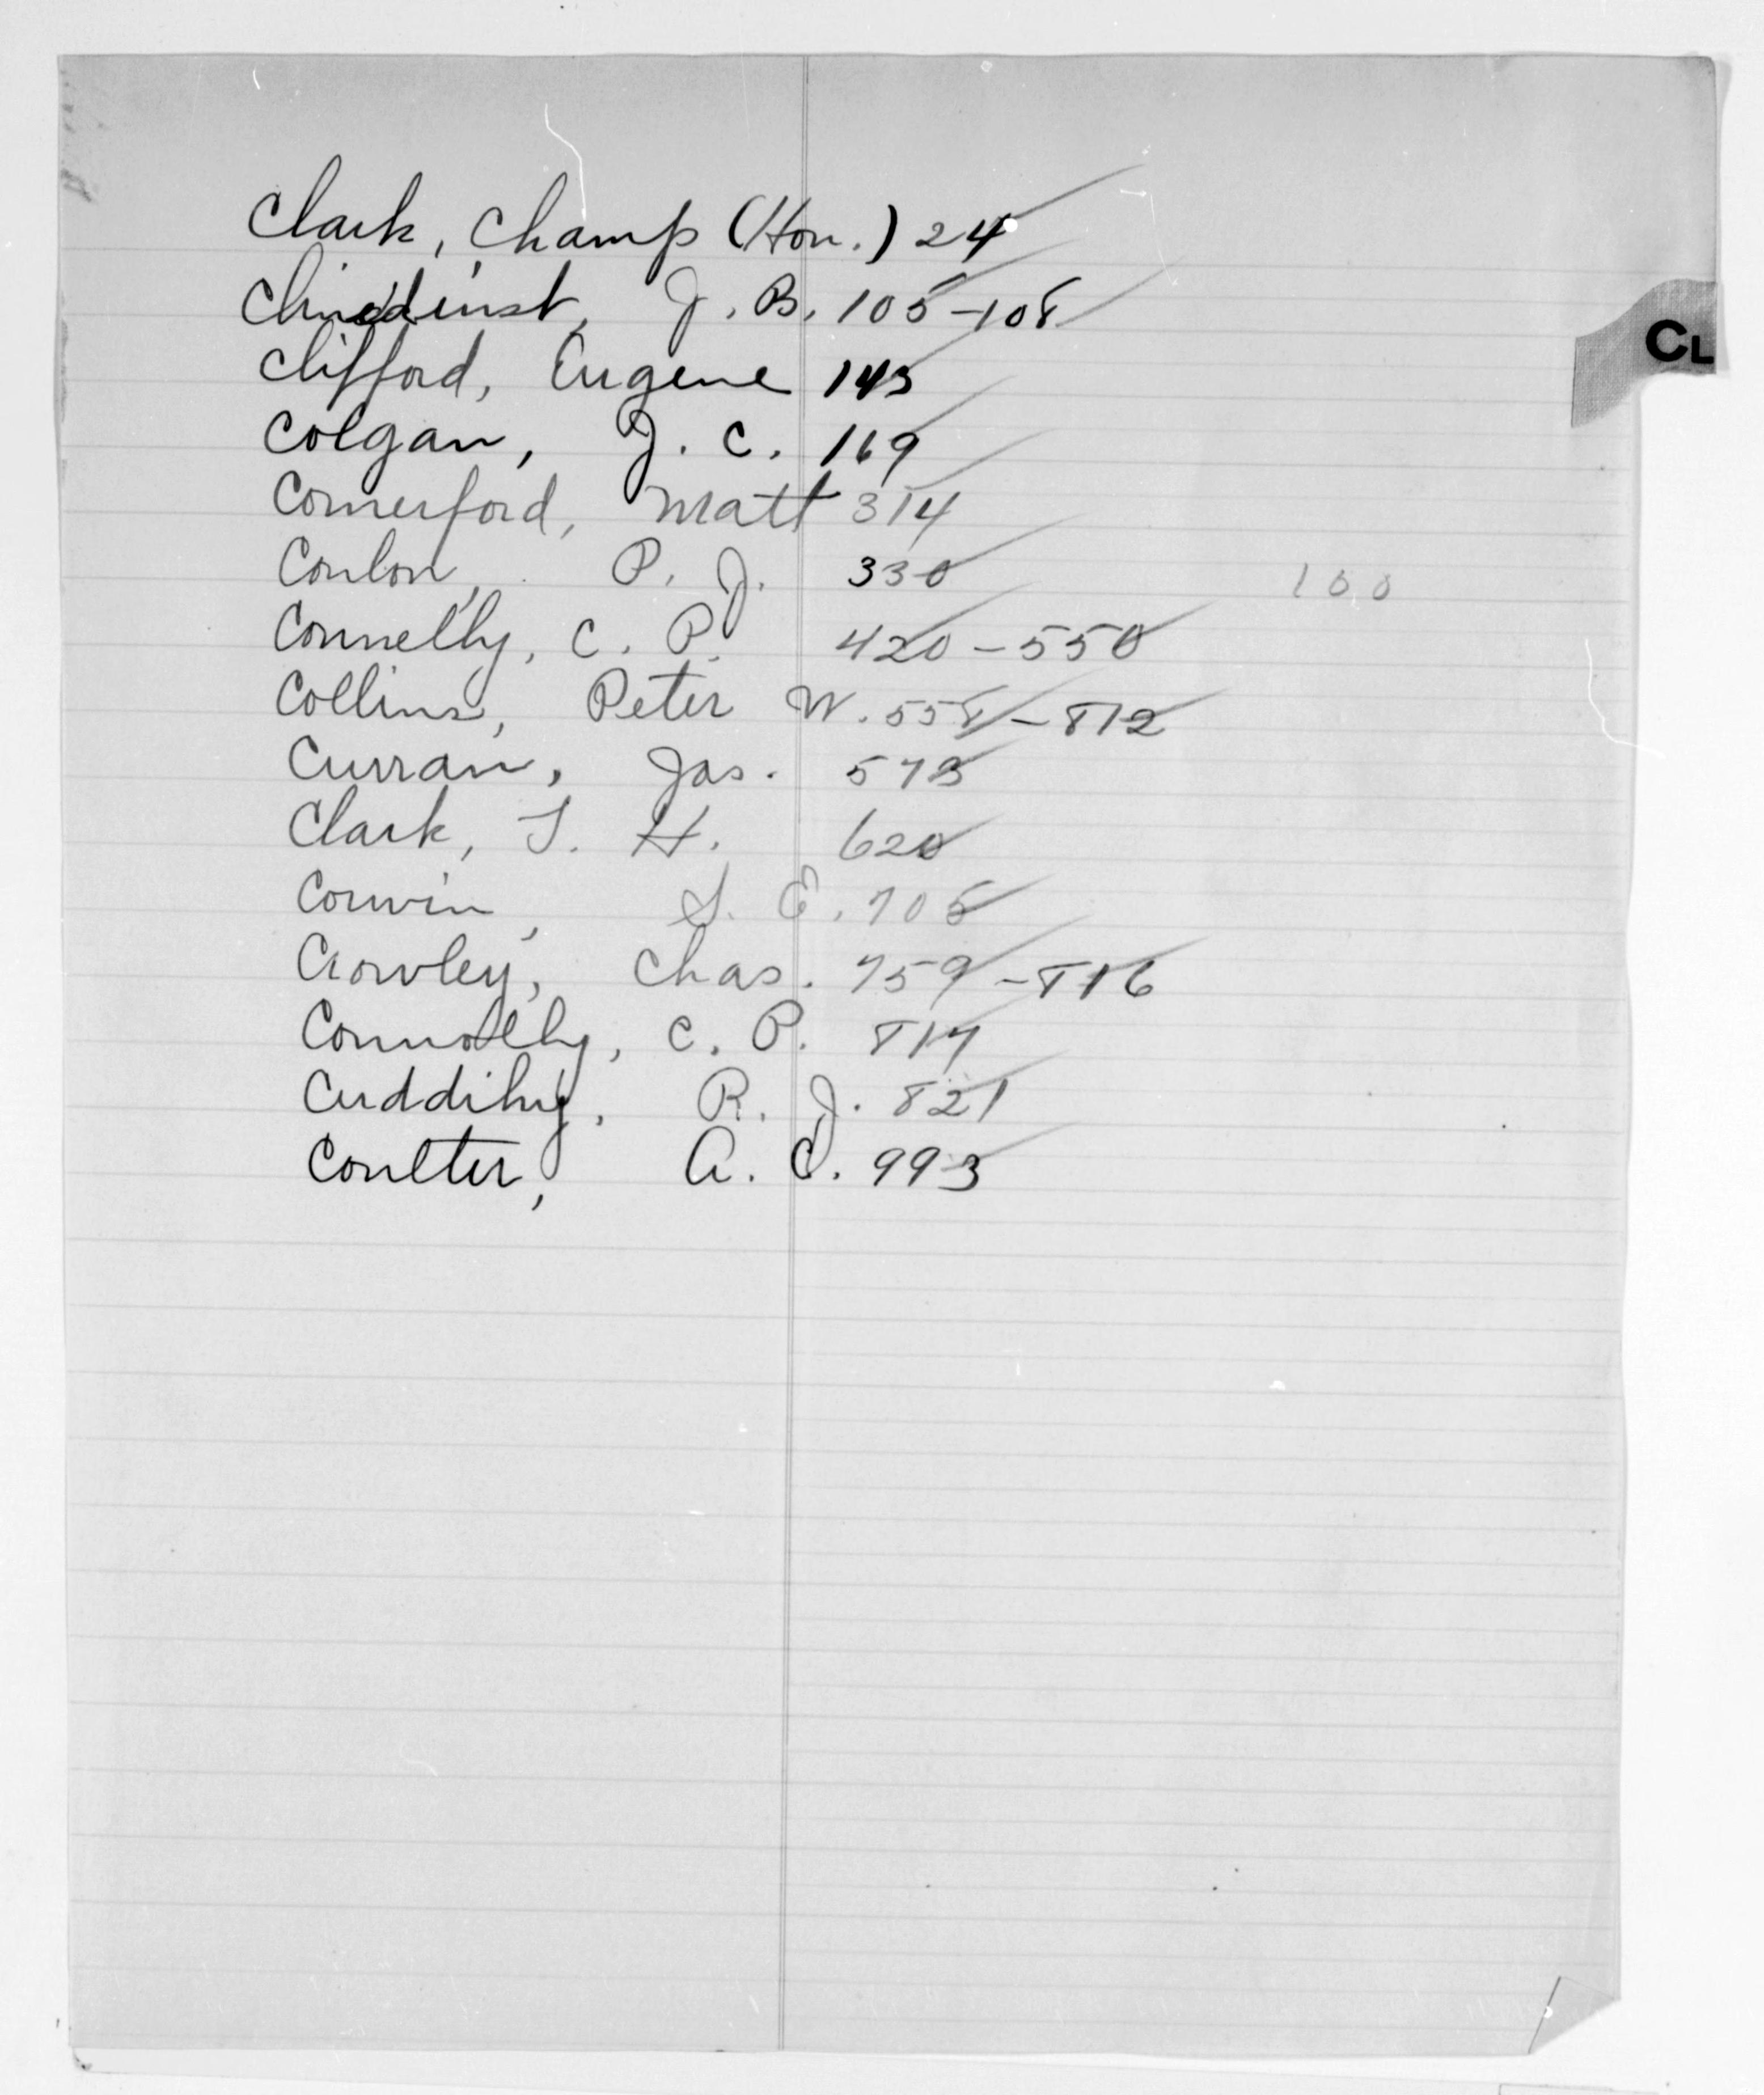 Clark, Champ (Hon.) 24
Clinedinst, J. B. 105-108
CL
Clifford, Eugene 143
Colgan, J. C. 169
Comerford, Matt 314
Conlon, P. J. 330
100
Connelly, C. P. 420-550
Collins, Peter W. 558-812
Curran, Jas. 573
Clark, T. H. 620
Corwin, S. E. 705
Crowley, Chas. 759-816
Connolly, C. P. 817
Cuddihy, R. J. 821
Coulter, A. C. 993